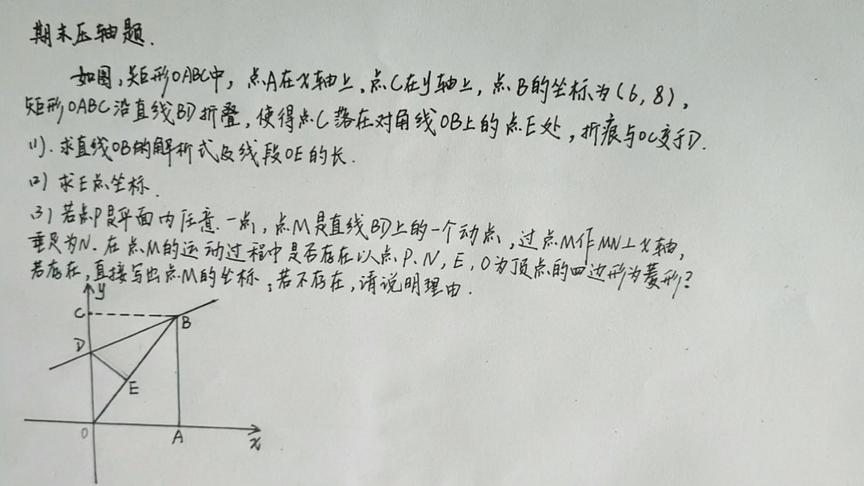 期末压轴题.
如图,矩形OABC中,点A在x轴上,点C在y轴上,点B的坐标为(6,8),
矩形OABC沿直线BD折叠,使得点C落在对角线OB上的点E处,折痕与OC交于D.
(1).求直线OB的解析式及线段OE的长.
(2)求E点坐标.
(3)若点P是平面内任意一点,点M是直线BD上的一个动点,过点M作MN⊥x轴,
垂足为N.在点M的运动过程中是否存在以点P、N,E,O为顶点的四边形为菱形?
若存在,直接写出点M的坐标;若不存在,请说明理由.
y
C
B
D
E
O
A
x